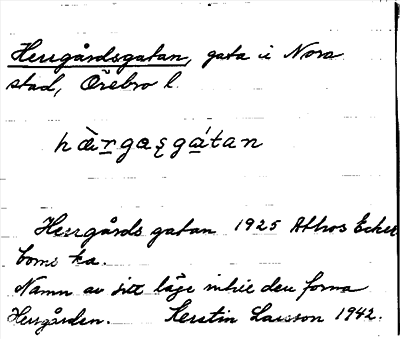 Herrgårdsgatan, gata i Nora
stad, Örebro l.
hæ̀rgaşgátan
Herrgårds gatan 1925 Athos Ecker
boms ka.
Namn av sitt läge intill den forna
Herrgården. Kerstin Larsson 1942.